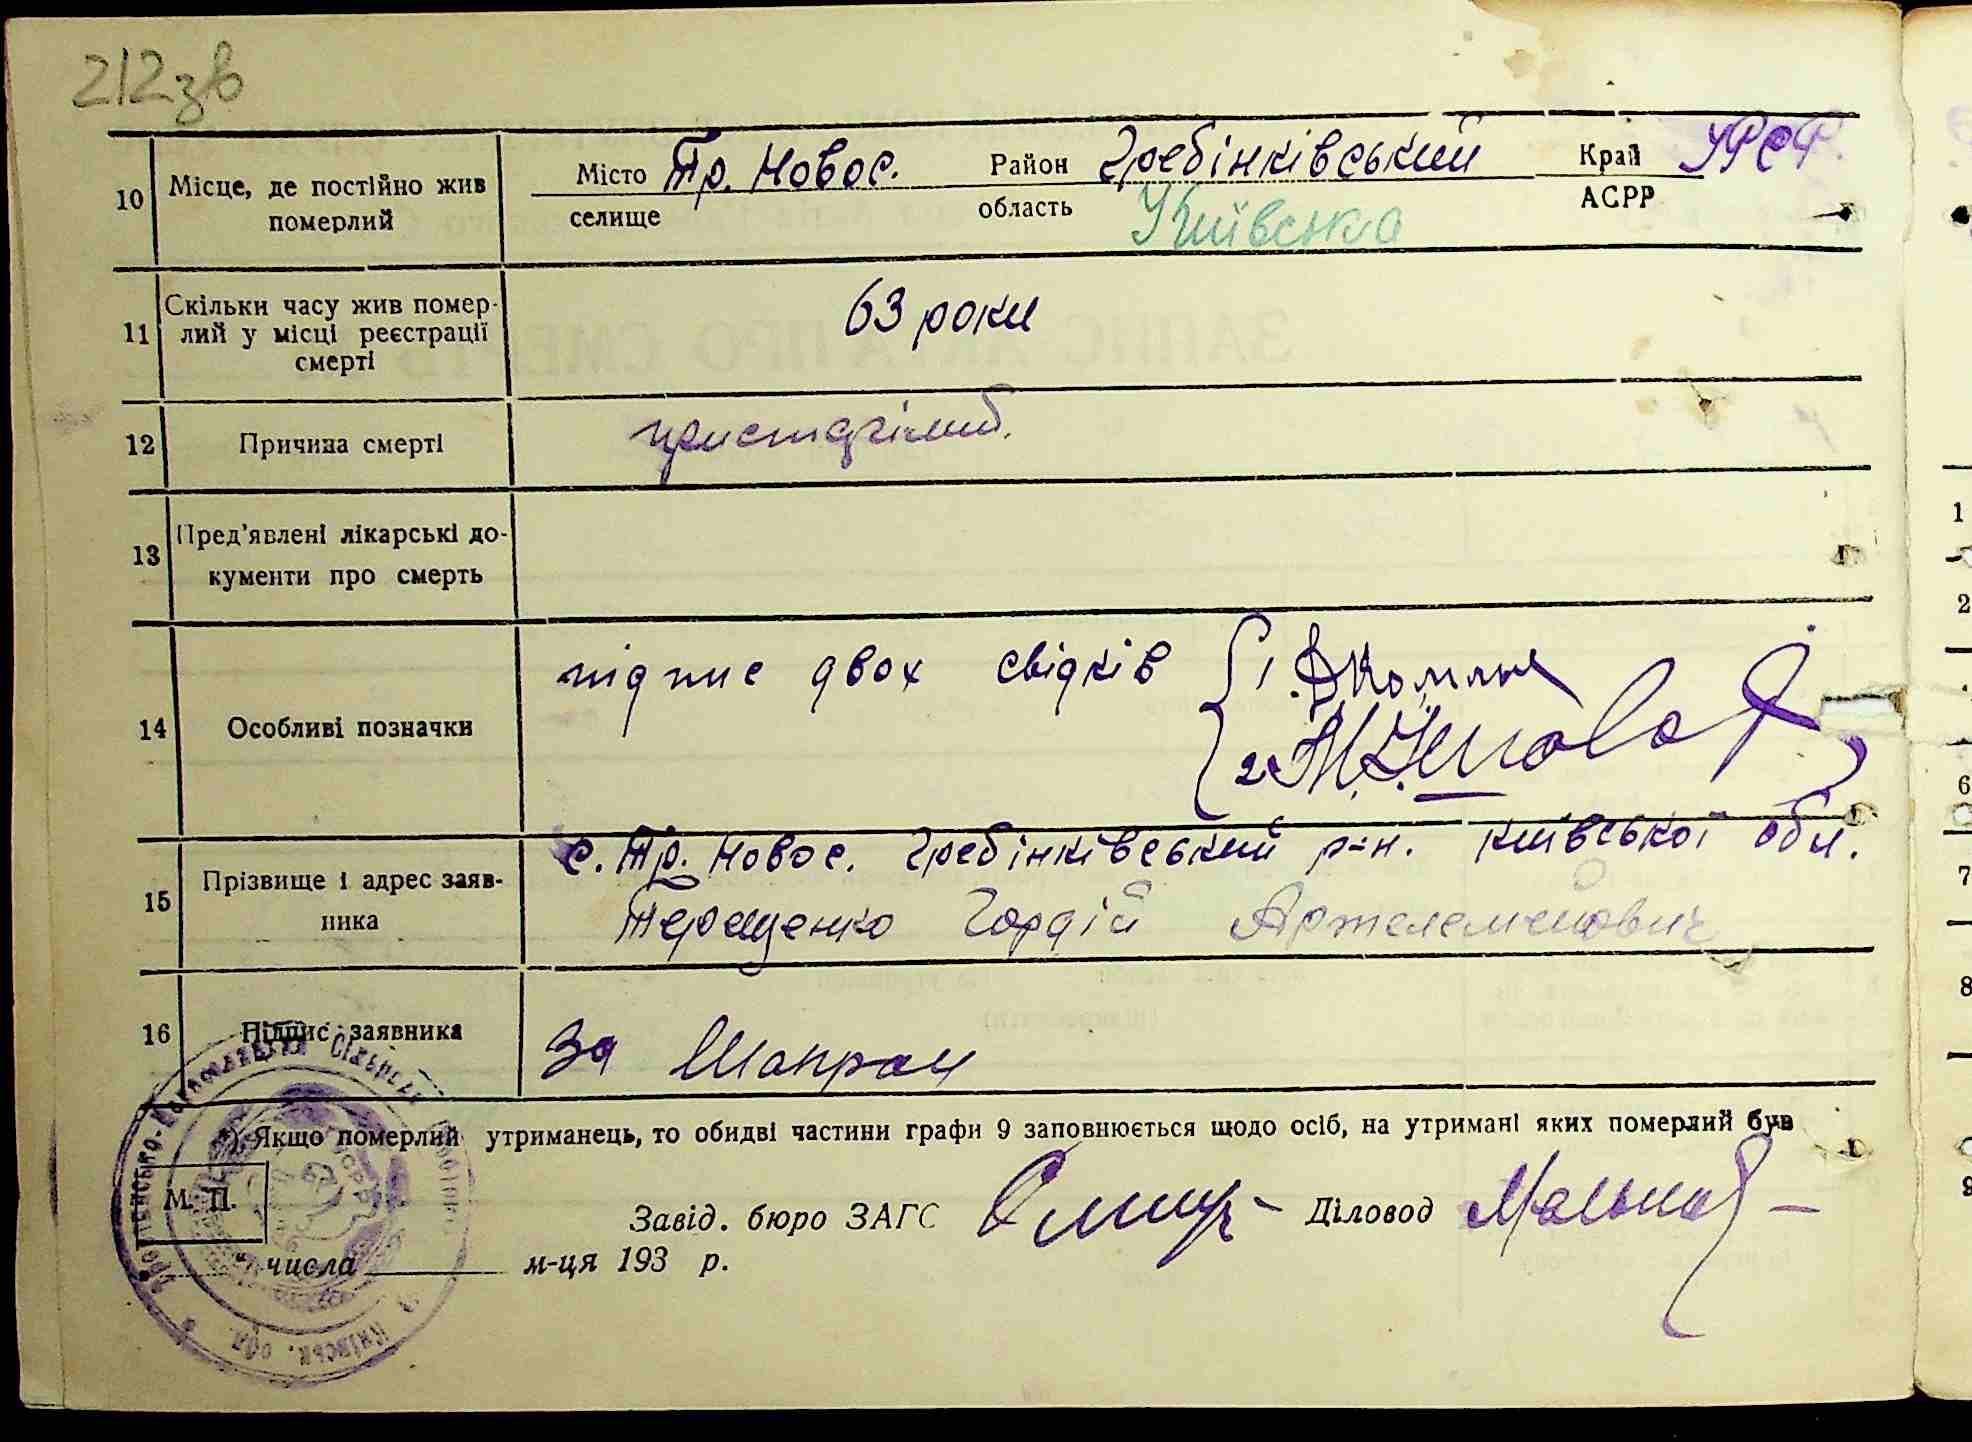 212зв
10 Місце, де постійно жив Місто Тр. Новос. Район Гребінківський Край УРСР.
померлий селище область Київська АСРР
Скільки часу жив помер-
11 лий у місці реєстрації 63 роки
смерті
12 Причина смерті
Пред'явлені лікарські до-
13 кументи про смерть
підпис двох свідків 1.
14 Особливі позначки 2
с. Тр. Новос. Гребінківський р-н. київської обл.
15 Прізвище і адрес заяв-
ника Терещенко Гордій
16 Підпис заявника За Шапран
*) Якщо померлий утриманець, то обидві частини графи 9 заповнюється щодо осіб, на утримані яких померлий був
М. П.
Завід. бюро ЗАГС Діловод
" числа м-ця 193 р.
Київськ. обл.
1
2
6
7
8
9